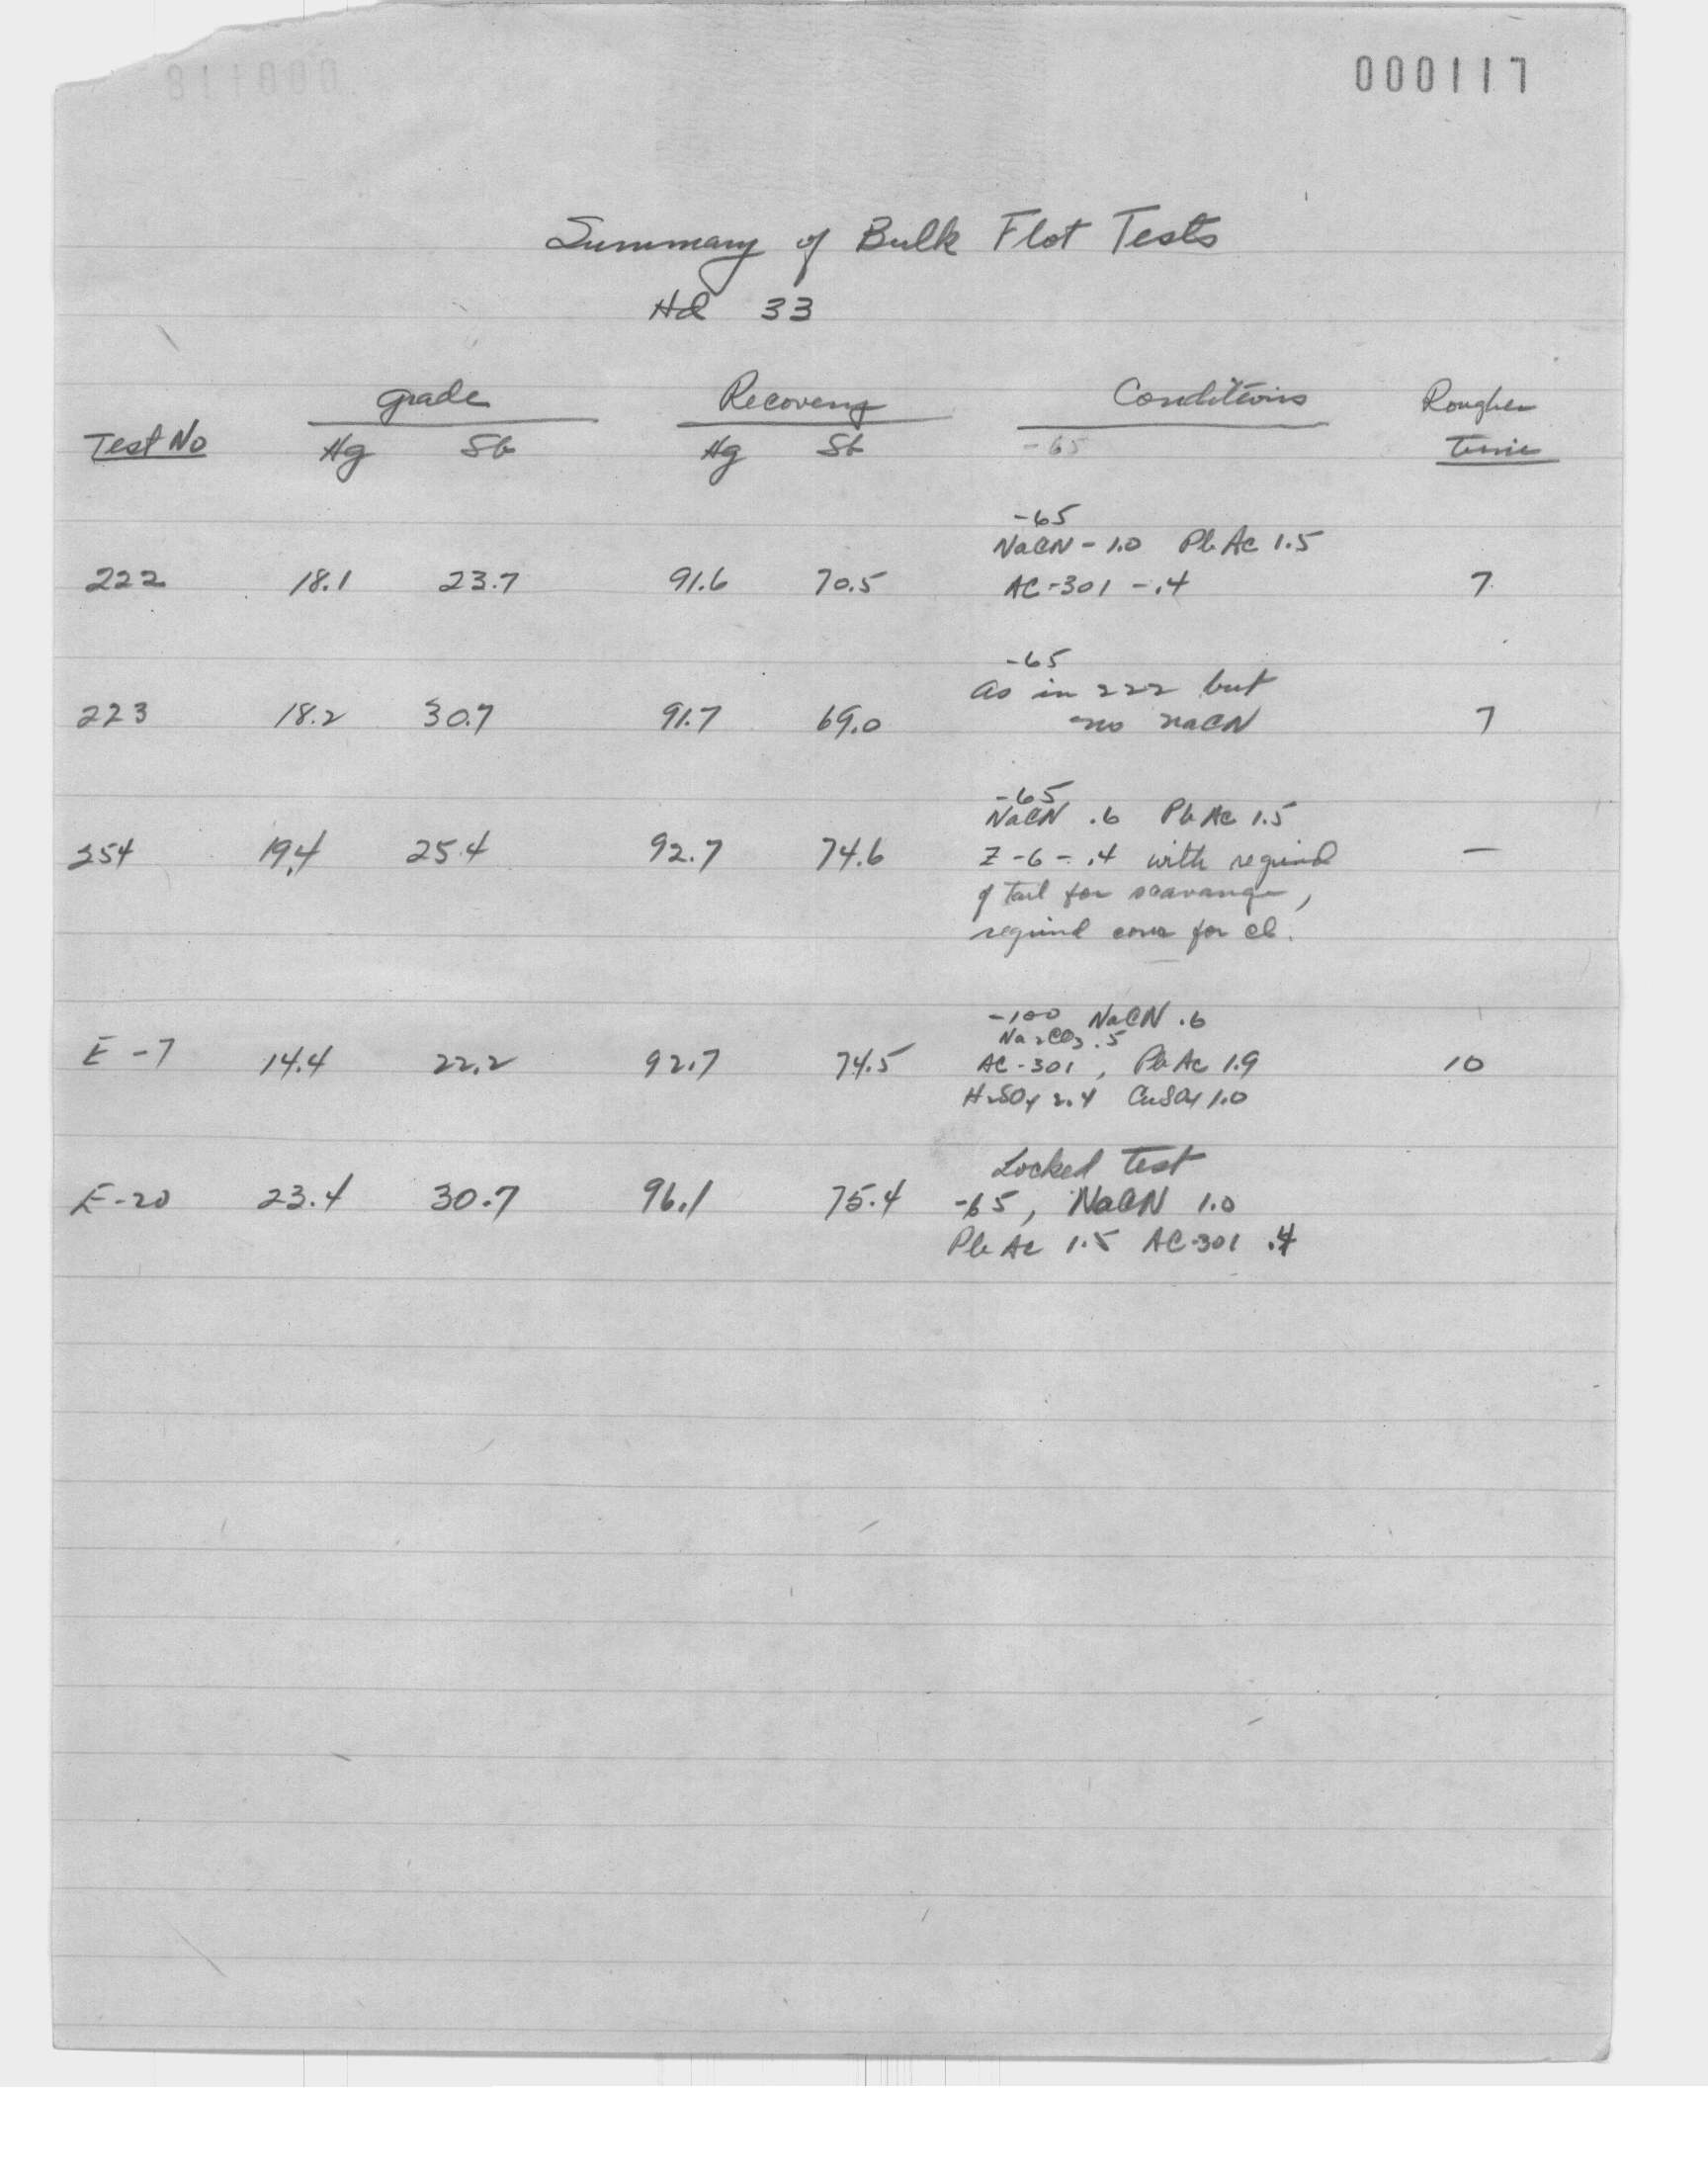 000117
Summary of Bulk Flot Tests
Hd 33
grade Recovery Conditions Rougher
Test No Hg Sb Hg Sb -65 Time
-65
NaCN - 1.0 Pb Ac 1.5
222 18.1 23.7 91.6 70.5 AC-301 - .4 7
-65
as in 222 but
223 18.2 30.7 91.7 69.0 no NaCN 7
-65
NaCN .6 Pb Ac 1.5
254 19.4 25.4 92.7 74.6 Z-6 - .4 with regrind —
of tail for scavange,
regrind conc for cl.
-100 NaCN .6
Na2CO3 .5
E-7 14.4 22.2 92.7 74.5 AC-301, Pb Ac 1.9 10
H2SO4 2.4 CuSO4 1.0
Locked Test
E-20 23.4 30.7 96.1 75.4 -65, NaCN 1.0
Pb Ac 1.5 AC-301 .4